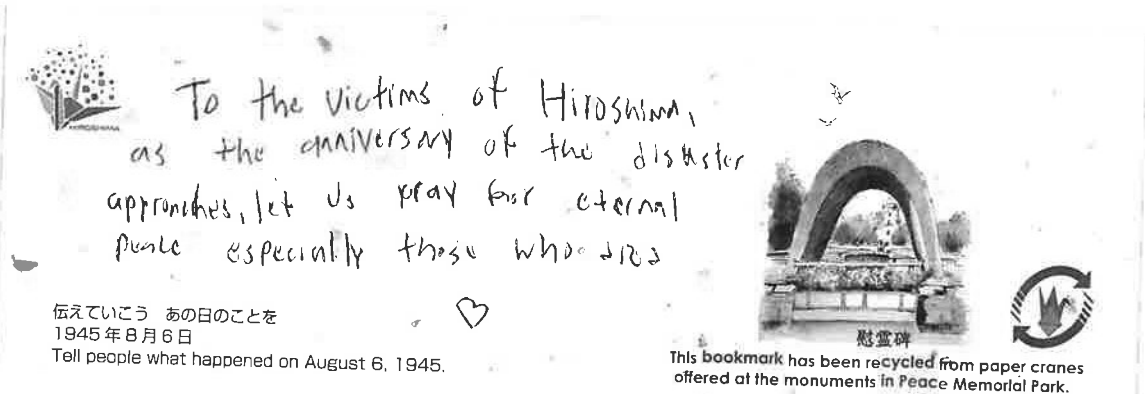 To the victims of Hiroshima,
as the anniversary of the disaster
approaches, let us pray for eternal
peace especially those who died
伝えていこう あの日のことを
1945年8月6日
Tell people what happened on August 6, 1945.
HIROSHIMA
慰霊碑
This bookmark has been recycled from paper cranes
offered at the monuments in Peace Memorial Park.